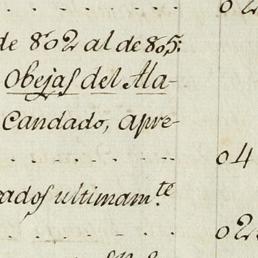 de 802 al de 805:
Obejas del Ala-
Candado, apre-
04
rados ultimam.te
02